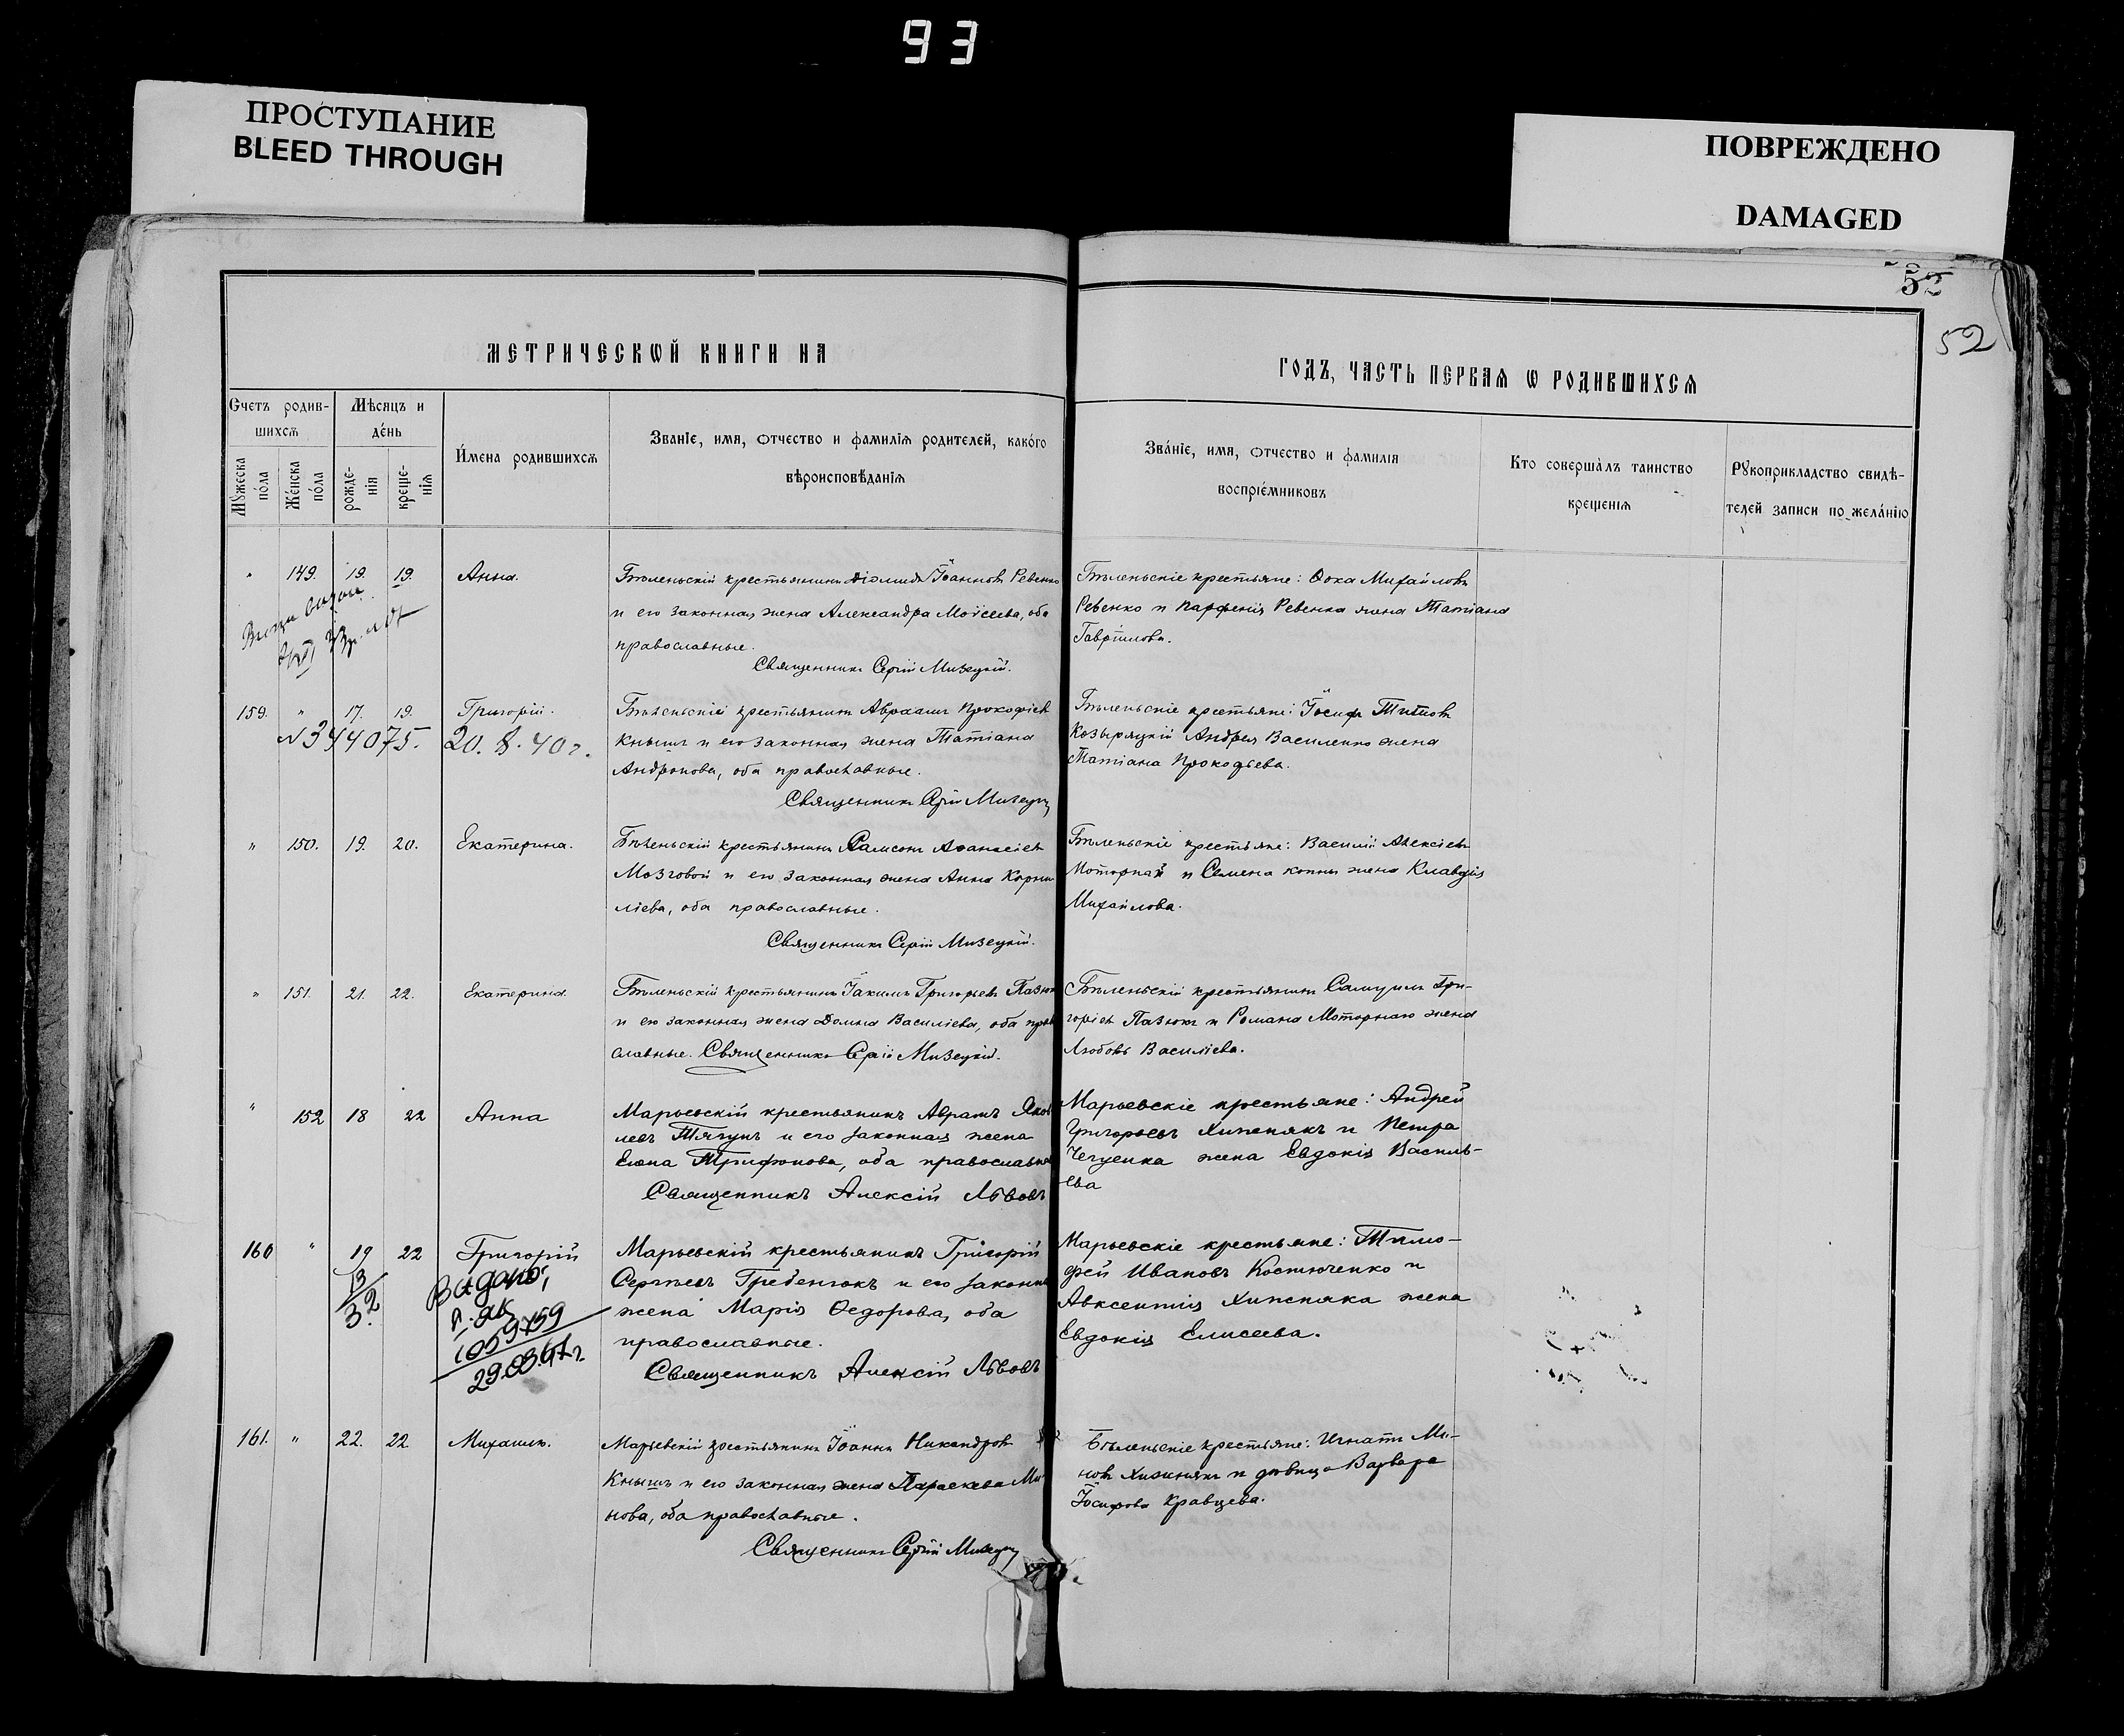 93
ПРОСТУПАНИЕ
BLEED THROUGH
ПОВРЕЖДЕНО
DAMAGED
52
52
МЕТРИЧЕСКѠЙ КНИГИ НА
ГОДЪ, ЧАСТЬ ПЕРВАѦ Ѡ РОДИВШИХСѦ
Счетъ родив-
шихсѧ
Мѣсяцъ и
де́нь
Мꙋжеска
по́ла
Же́нска
по́ла
рожде-
нія
креще-
нія
И́мена родившихсѧ
Званіе, имя, отчество и фамиліѧ родителей, како́го
вѣроисповѣданіѧ
Зва́ніе, имя, отчество и фамилія
воспріе́мниковъ
Кто соверша̀лъ таинство
крещеніѧ
Рꙋкоприкладство свидѣ-
телей записи по жела́нію
" 149. 19. 19. Анна.
Бѣленьскій крестьянинъ Іоанновъ Ревенко
и его законная жена Александра Моѵсеева, оба
православные.
Священникъ Сергій Мизецкій.
Бѣленьскіе крестьяне: Ѳока Михайловъ
Ревенко и Парфенія Ревенка жена Татіана
Гавріилова.
159. " 17. 19. Григорій.
N 344075. 20. 8. 40 г.
Бѣленьскій крестьянинъ Авраамъ Прокофіевъ
Кнышъ и его законная жена Татіана
Андронова, оба православные.
Священникъ Сергій Мизецкій
Бѣленьскіе крестьяне: Іосифъ Титовъ
Козыряцкій Андрея Василенко жена
Татіана Прокофьева.
" 150. 19. 20. Екатерина.
Бѣленьскій крестьянинъ Самсонъ Аѳанасіевъ
Мозговой и его законная жена Анна Корни
ліева, оба православные.
Священникъ Сергій Мизецкій.
Бѣленьскіе крестьяне: Василій Алексіевъ
Моторный и Семена жена Клавдія
Михайлова.
" 151. 21. 22. Екатерина.
Бѣленьскій крестьянинъ Іакимъ Григорьевъ Пазюк
и его законная жена Домна Василіева, оба право
славные. Священникъ Сергій Мизецкій.
Бѣленьскій крестьянинъ Самуилъ Гри-
горіевъ Пазюкъ и Романа Моторнаго жена
Любовь Василіева.
" 152 18 22 Анна
Марьевскій крестьянинъ Аврамъ Яков
левъ Тягунъ и его законная жена
Елена Трифонова, оба православные
Священникъ Алексій Львовъ
Марьевскіе крестьяне: Андрей
Григорьевъ Хижнякъ и Петра
жена Евдокія Василь-
ева
160 " 19 22 Григорій
13
32
1059759
29.03.47 г.
Марьевскій крестьянинъ Григорій
Сергѣевъ Гребенюкъ и его законная
жена Марія Ѳедорова, оба
православные.
Священникъ Алексій Львовъ
Марьевскіе крестьяне: Тимо-
фей Ивановъ Костюченко и
Авксентія Хижняка жена
Евдокія Елисеева.
161. " 22. 22. Михаилъ.
Марьевскій крестьянинъ Іоаннъ Никандровъ
Кнышъ и его законная жена Параскева Ми
нова, оба православные.
Священникъ Сергій Мизецкій
Бѣленьскіе крестьяне: Игнатъ Ми-
новъ Хижнякъ и дѣвица Варвара
Іосифова Кравцева.